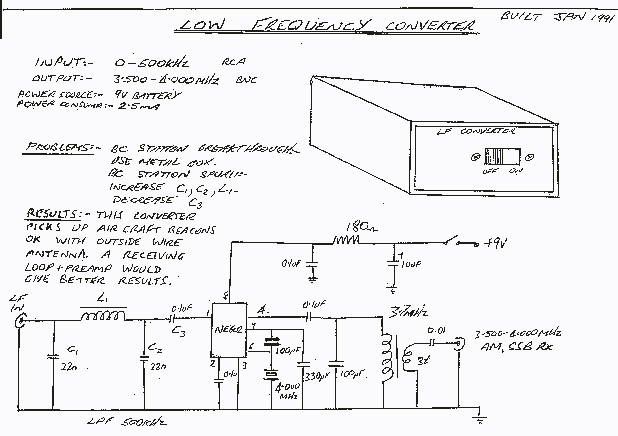 LOW FREQUENCY CONVERTER
BUILT JAN 1991
INPUT:- 0-500KHZ RCA
OUTPUT:- 3.500-4.000MHZ BNC
POWER SOURCE:- 9V BATTERY
POWER CONSUMP:- 2.5mA
PROBLEMS:- BC STATION BREAKTHROUGH-
USE METAL BOX.
BC STATION SPURII-
INCREASE C1, C2, L1-
DECREASE C3
RESULTS:- THIS CONVERTER
PICKS UP AIR CRAFT BEACONS
OK WITH OUTSIDE WIRE
ANTENNA. A RECEIVING
LOOP + PREAMP WOULD
GIVE BETTER RESULTS.
LF CONVERTER
OFF ON
180Ω
+9V
0.1uF
+
10uF
LF
IN
L1
0.1uF
C3
1
8
NE602
4
7
6
2
3
0.1uF
3.7MHz
0.01
3.500-4.000MHz
AM, SSB RX
3t
C1
22n
C2
22n
100pF
4.000
MHz
330pF
100pF
LPF 500KHZ